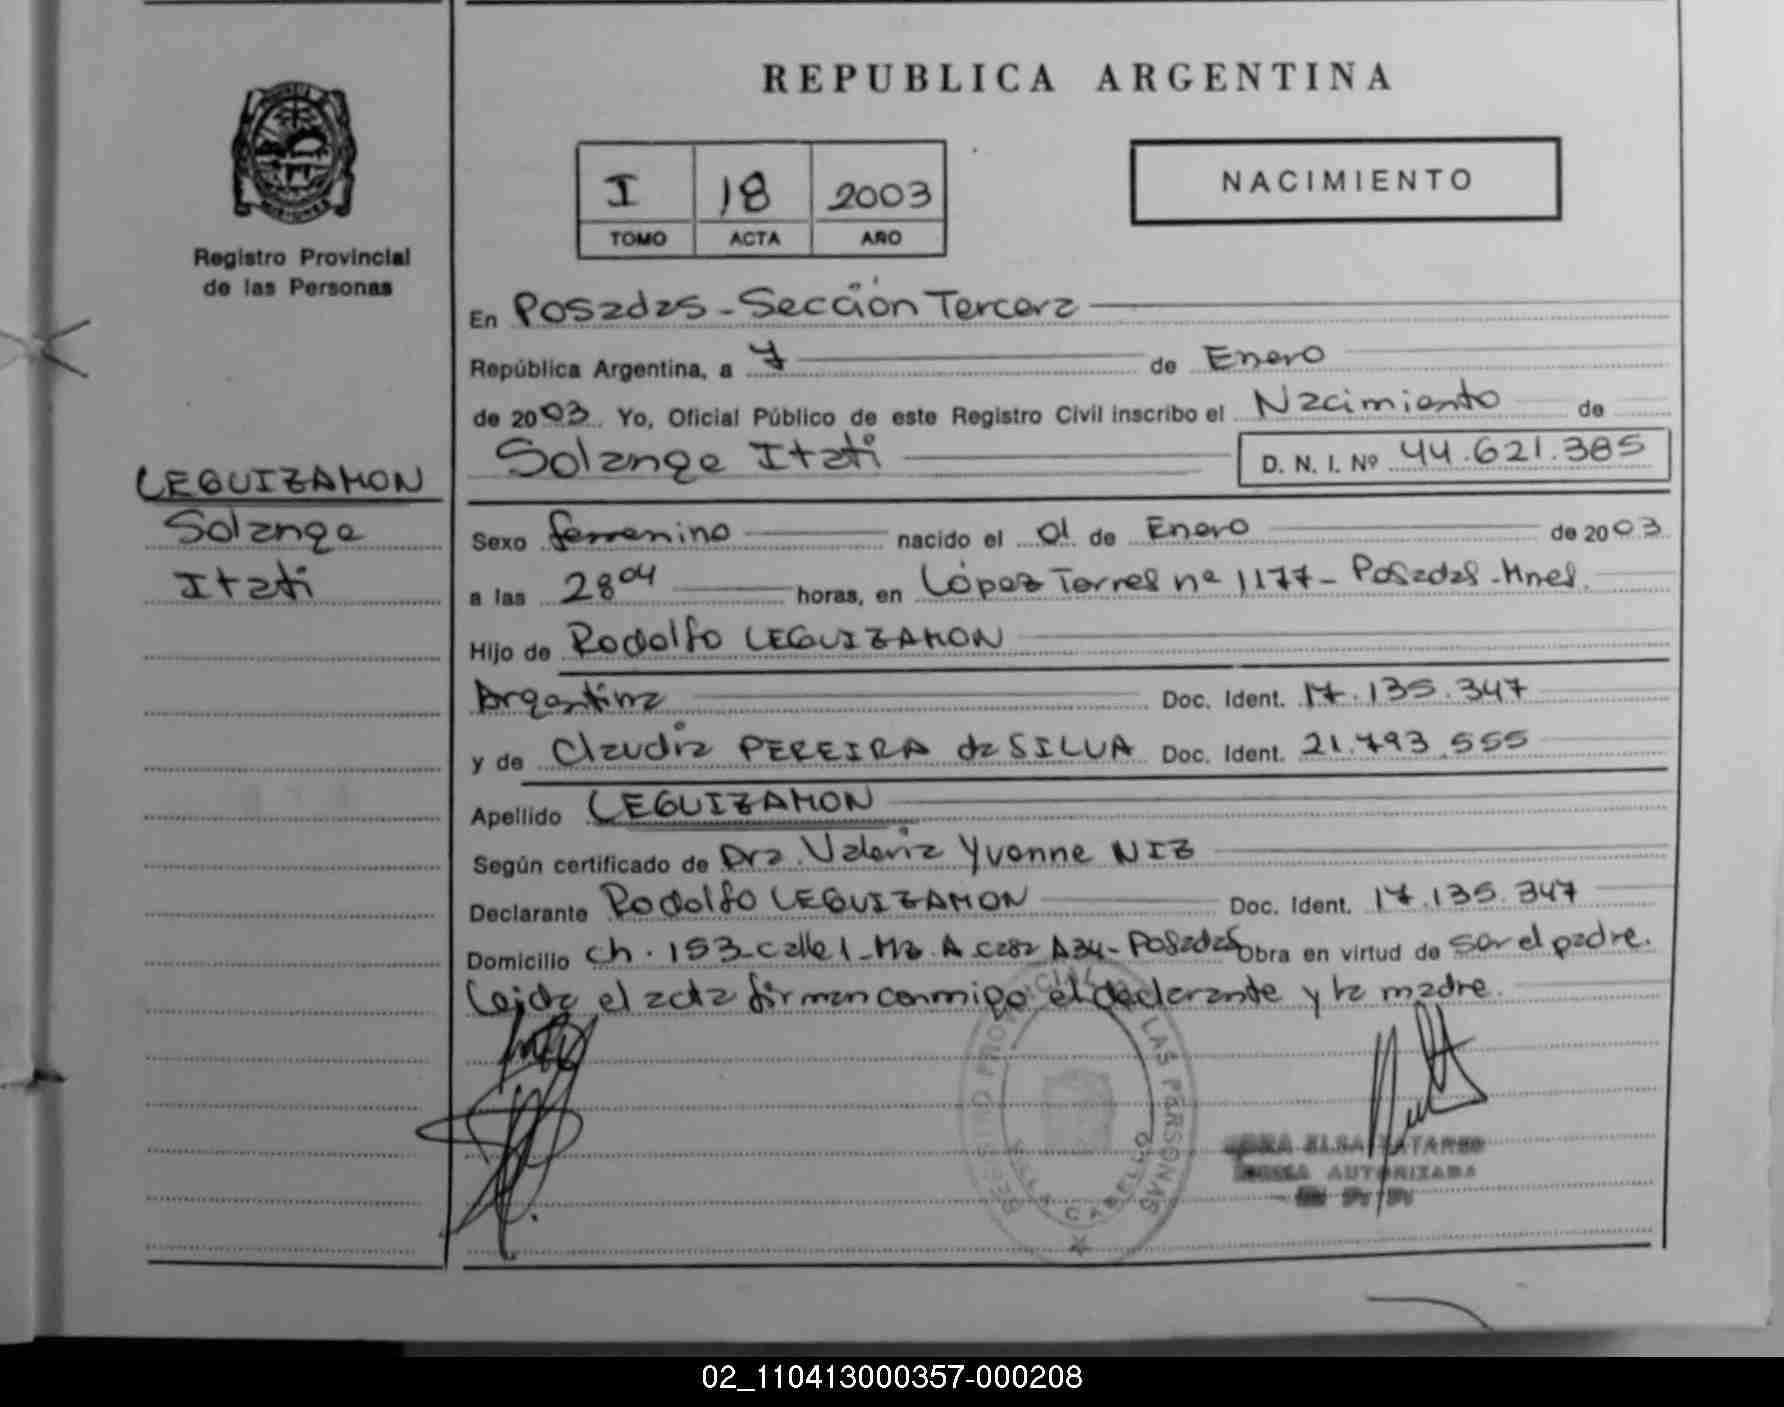 REPUBLICA ARGENTINA
I 18 2003
TOMO ACTA AÑO
NACIMIENTO
Registro Provincial
de las Personas
LEGUIZAMON
Solange
Itati
En Posadas - Sección Tercera
República Argentina, a 7 de Enero
de 2003. Yo, Oficial Público de este Registro Civil inscribo el Nacimiento de
Solange Itati D. N. I. Nº 44.621.385
Sexo femenino nacido el 01 de Enero de 2003
a las 2804 horas, en López Torres nº 1177 - Posadas - Mnes.
Hijo de Rodolfo LEGUIZAMON
Argentina Doc. Ident. 17.135.347
y de Claudia PEREIRA da SILVA Doc. Ident. 21.793.555
Apellido LEGUIZAMON
Según certificado de Dra. Valeria Yvonne NIZ
Declarante Rodolfo LEGUIZAMON Doc. Ident. 17.135.347
Domicilio Ch. 153 - calle 1 - Mz. A casa A34 - Posadas Obra en virtud de ser el padre.
Leida el acta firman conmigo el declarante y la madre.
REGISTRO PROVINCIAL DE LAS PERSONAS
VILLA CABELLO
ELSA
AUTORIZADA
02_110413000357-000208